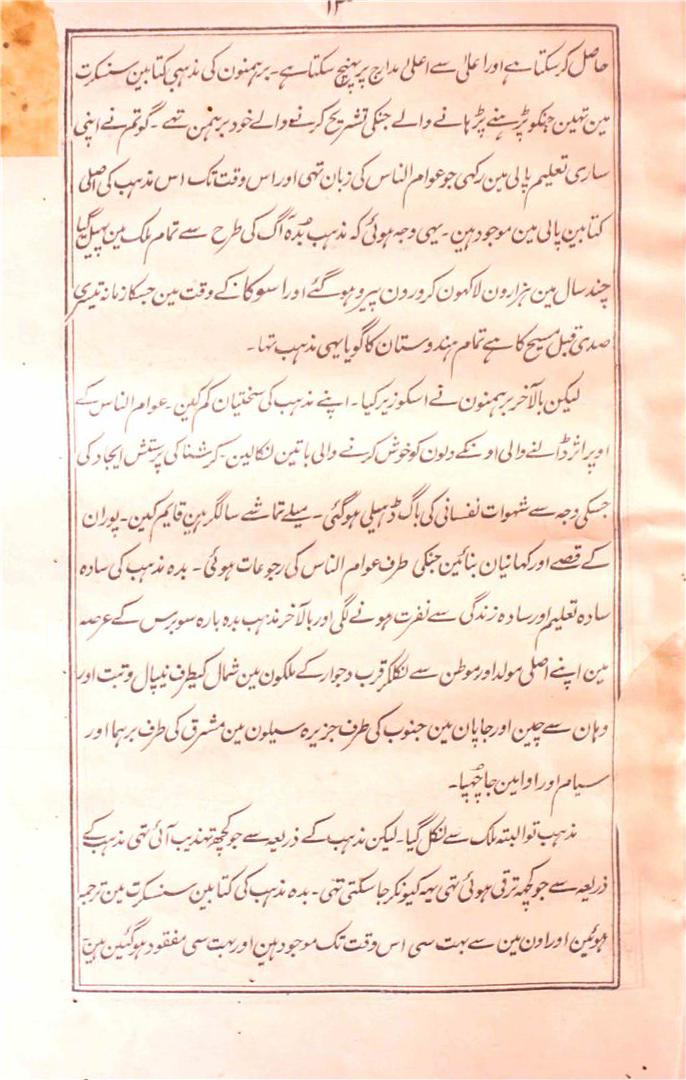 حاصل کرسکتا ہے اور اعلیٰ سے اعلیٰ مدارج پر پہنچ سکتا ہے۔ برہمنون کی مذہبی کتابین سنسکرت
مین تہین جنکو پڑہنے پڑہانے والے جنکی تشریح کرنے والے خود برہمن تہے۔ گوتم نے اپنی
ساری تعلیم پالی مین رکہی جو عوام الناس کی زبان تہی اور اس وقت تک اس مذہب کی اصلی
کتابین پالی مین موجود ہین۔ یہی وجہ ہوئی کہ مذہب بُدہ آگ کی طرح سے تمام ملک مین پہیل گیا
چند سال مین ہزارون لاکہون کرورون پیرو ہو گئے اور اسوکا کے وقت مین جسکا زمانہ تیسری
صدی قبل مسیح کا ہے تمام ہندوستان کا گویا یہی مذہب تہا۔
لیکن بالآخر برہمنون نے اسکو زیر کیا۔ اپنے مذہب کی سختیان کم کین۔ عوام الناس کے
اوپر اثر ڈالنے والی اونکے دلون کو خوش کرنے والی باتین نکالین۔ کرشنا کی پرستش ایجاد کی
جسکی وجہ سے شہوات نفسانی کی باگ ڈہیلی ہوگئی۔ میلے تماشے سالگرہین قایم کین۔ پوران
کے قصے اور کہانیان بنائین جنکی طرف عوام الناس کی رجوعات ہوئی۔ بدہ مذہب کی سادہ
سادہ تعلیم اور سادہ زندگی سے نفرت ہونے لگی اور بالآخر مذہب بدہ بارہ سو برس کے عرصہ
مین اپنے اصلی مولد اور موطن سے نکلکر قرب وجوار کے ملکون مین شمال کیطرف نیپال و تبت اور
وہان سے چین اور جاپان مین جنوب کی طرف جزیرہ سیلون مین مشرق کی طرف برہما اور
سیام اور اوا مین جا چہپا۔
مذہب تو البتہ ملک سے نکل گیا۔ لیکن مذہب کے ذریعہ سے جو کچھ تہذیب آئی تہی مذہب کے
ذریعہ سے جو کچھ ترقی ہوئی تہی یہہ کیونکر جا سکتی تہی۔ بدہ مذہب کی کتابین سنسکرت مین ترجمہ
ہوئین اور اون مین سے بہت سی اس وقت تک موجود ہین اور بہت سی مفقود ہوگئین ہین